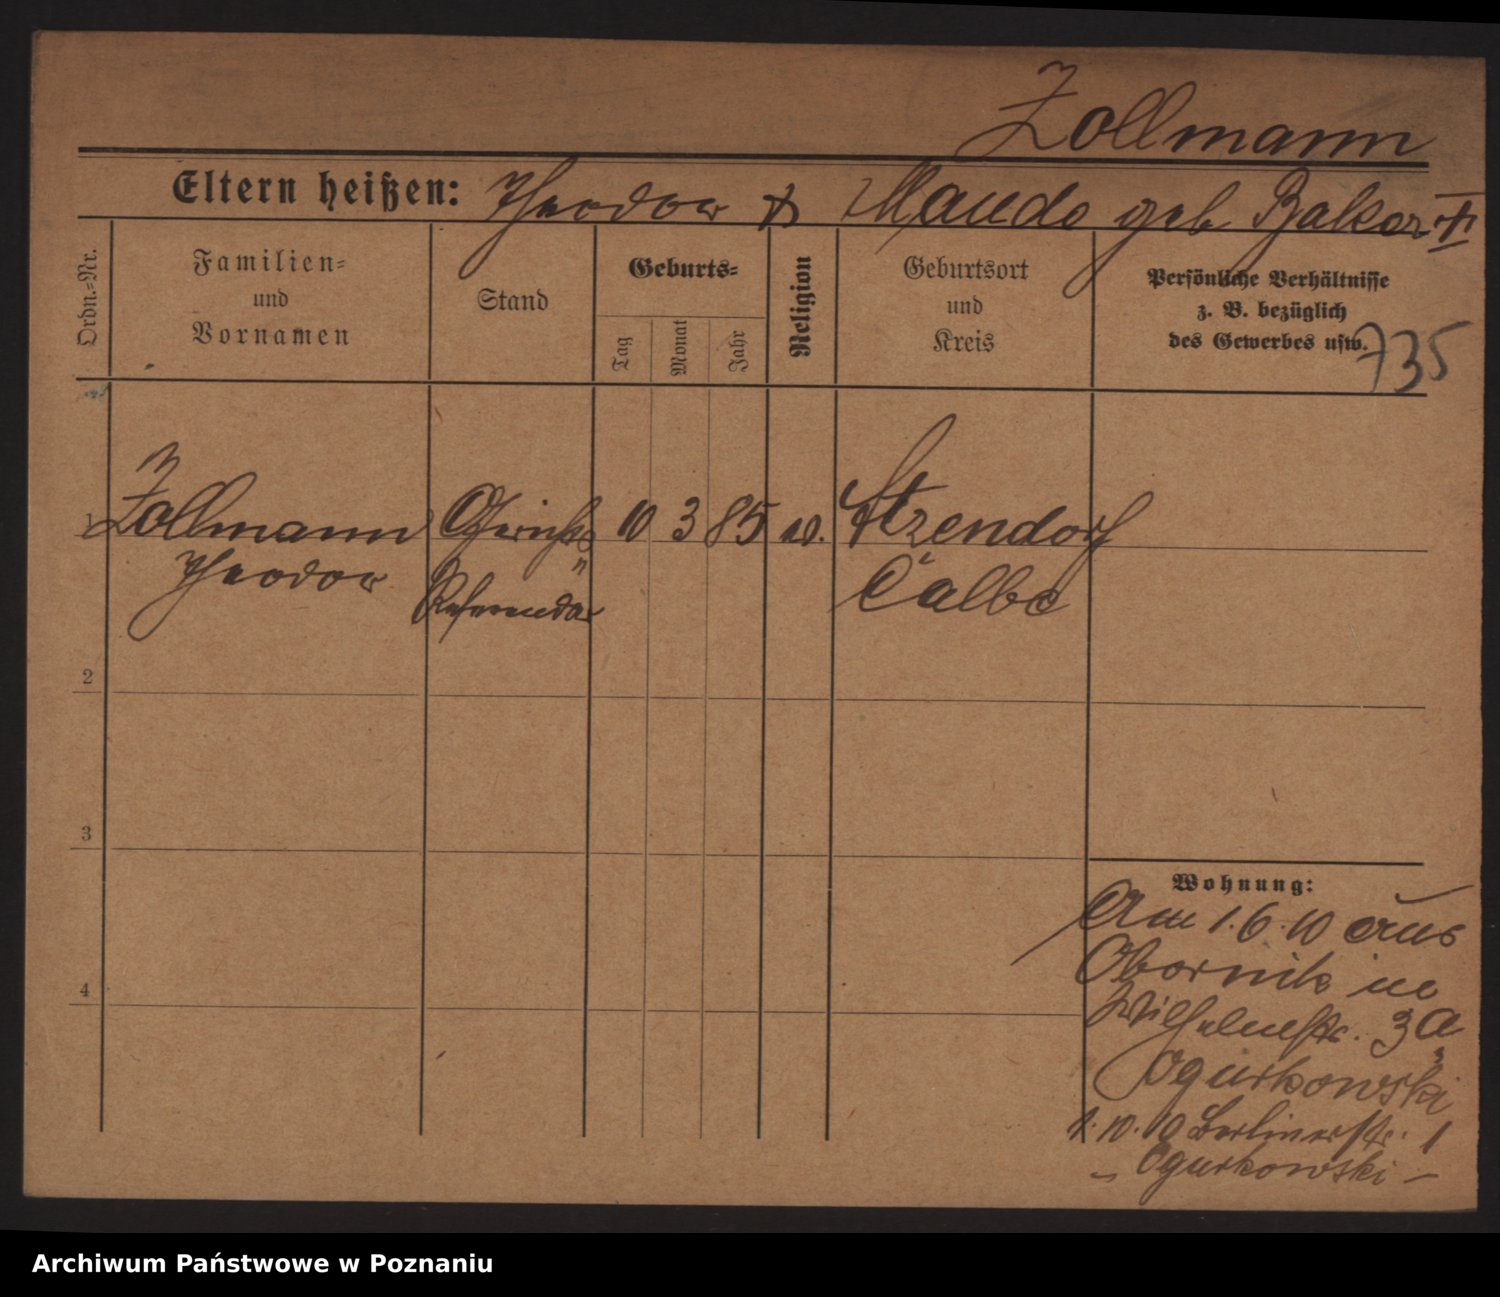 Zollmann
Eltern heißen: Theodor & Maude geb Baker
Ordn.-Nr.
Familien-
und
Vornamen
Stand
Geburts-
Tag
Monat
Jahr
Religion
Geburtsort
und
Kreis
Persönliche Verhältnisse
z. B. bezüglich
des Gewerbes usw.
735
1 Zollmann Gerichts 10 3 85 ev. Atzendorf
Theodor Referendar Calbe
2
3
4
Wohnung:
Am 1.6.10 aus
Obornik in
Wilhelmstr. 3a
Ogurkowski
1.10.10 Berlinerstr. 1
- Ogurkowski -
Archiwum Państwowe w Poznaniu